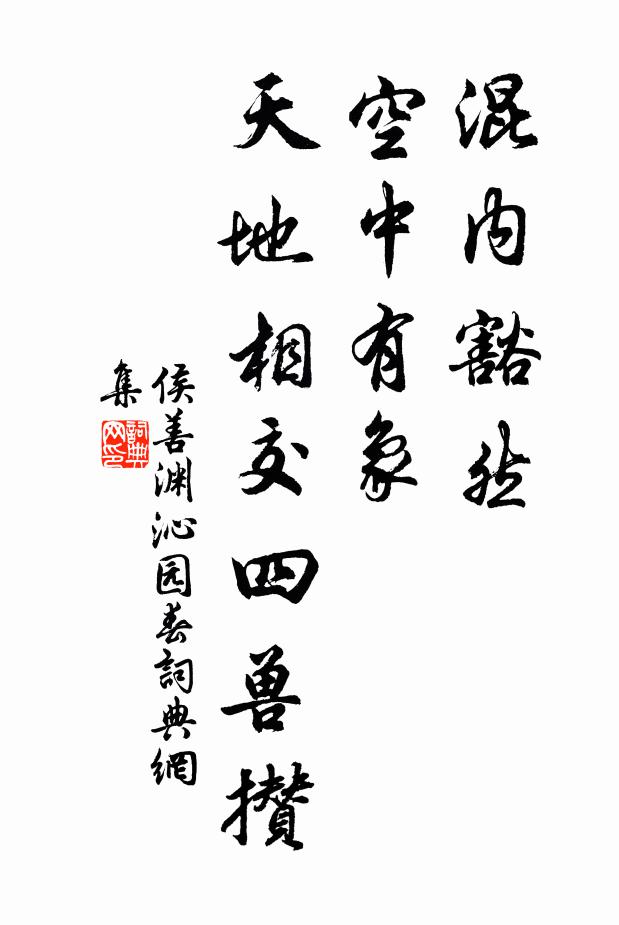 混内豁然
空中有象
天地相交四兽攒
侯善渊沁园春詞典網
集
詞典
网印